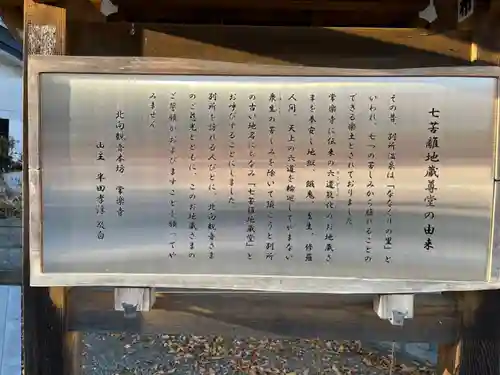 七苦離地蔵尊堂の由来
その昔、別所温泉は「ななくりの里」と
いわれ、七つの苦しみから離れることの
できる楽土とされておりました
常楽寺に伝来の六道能化のお地蔵さ
まを奉安し地獄、餓鬼、畜生、修羅
人間、天上の六道を輪廻してやまない
衆生の苦しみを除いて頂こうと別所
の古い地名にちなみ「七苦離地蔵堂」と
お呼びすることにしました
別所を訪れる人びとに、北向観音さま
のご慈光とともに、このお地蔵さまの
ご誓願がおよびますことを願ってや
みません
北向観音本坊 常楽寺
山主 半田孝淳敬白